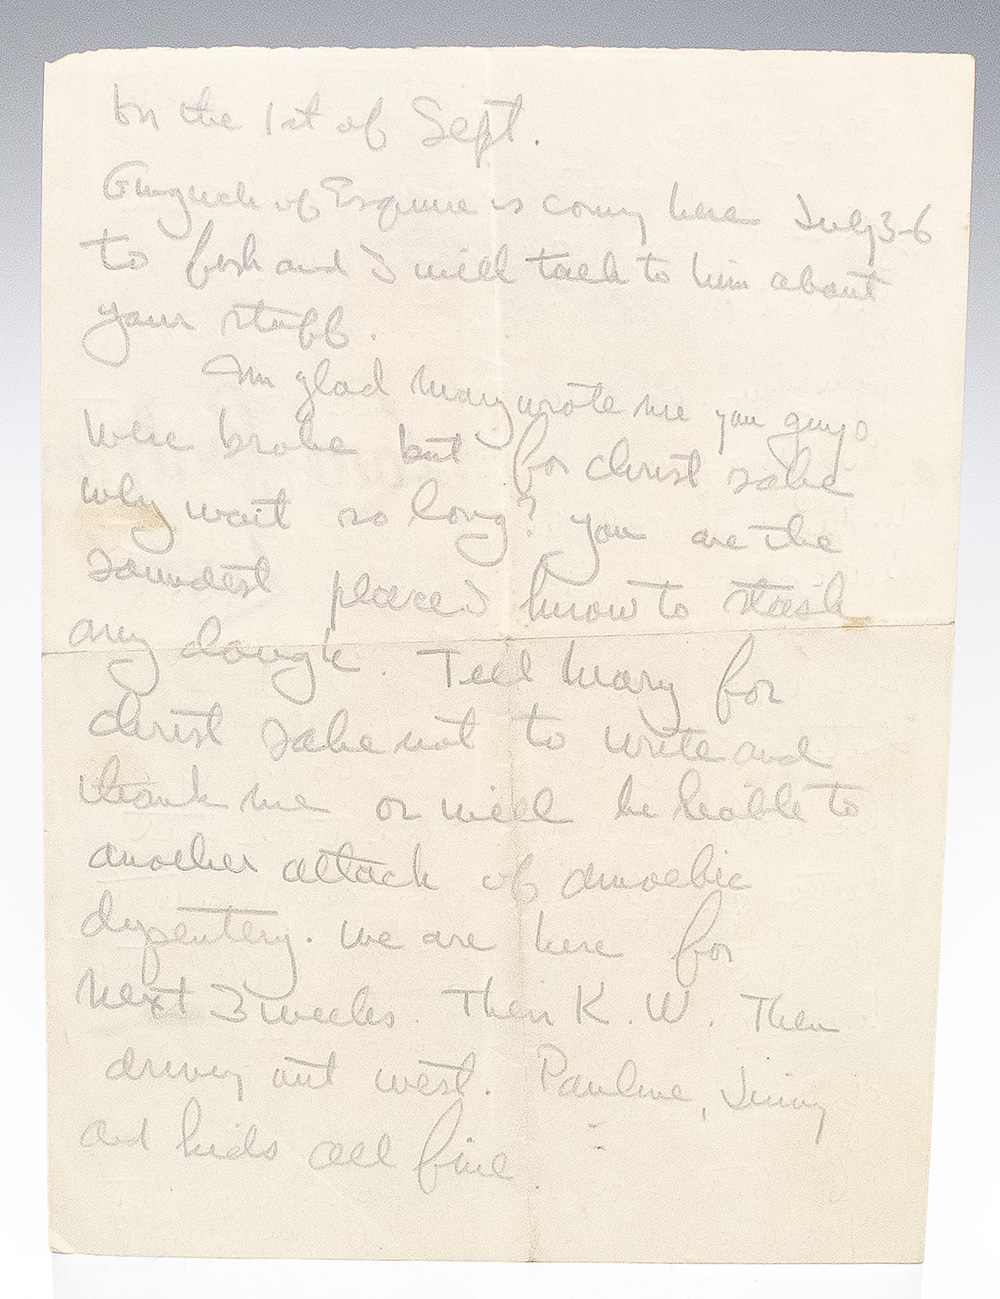 on the 1st of Sept.
Gingrich of Esquire is coming here July 3-6
to fish and I will talk to him about
your stuff.
I'm glad Mary wrote me you guys
were broke but for christ sake
why wait so long? You are the
soundest place I know to stash
any dough. Tell Mary for
christ sake not to write and
thank me or will be liable to
another attack of amoebic
dysentery. We are here for
next 3 weeks. Then K. W. Then
driving out west. Pauline, Jinny
and kids all fine